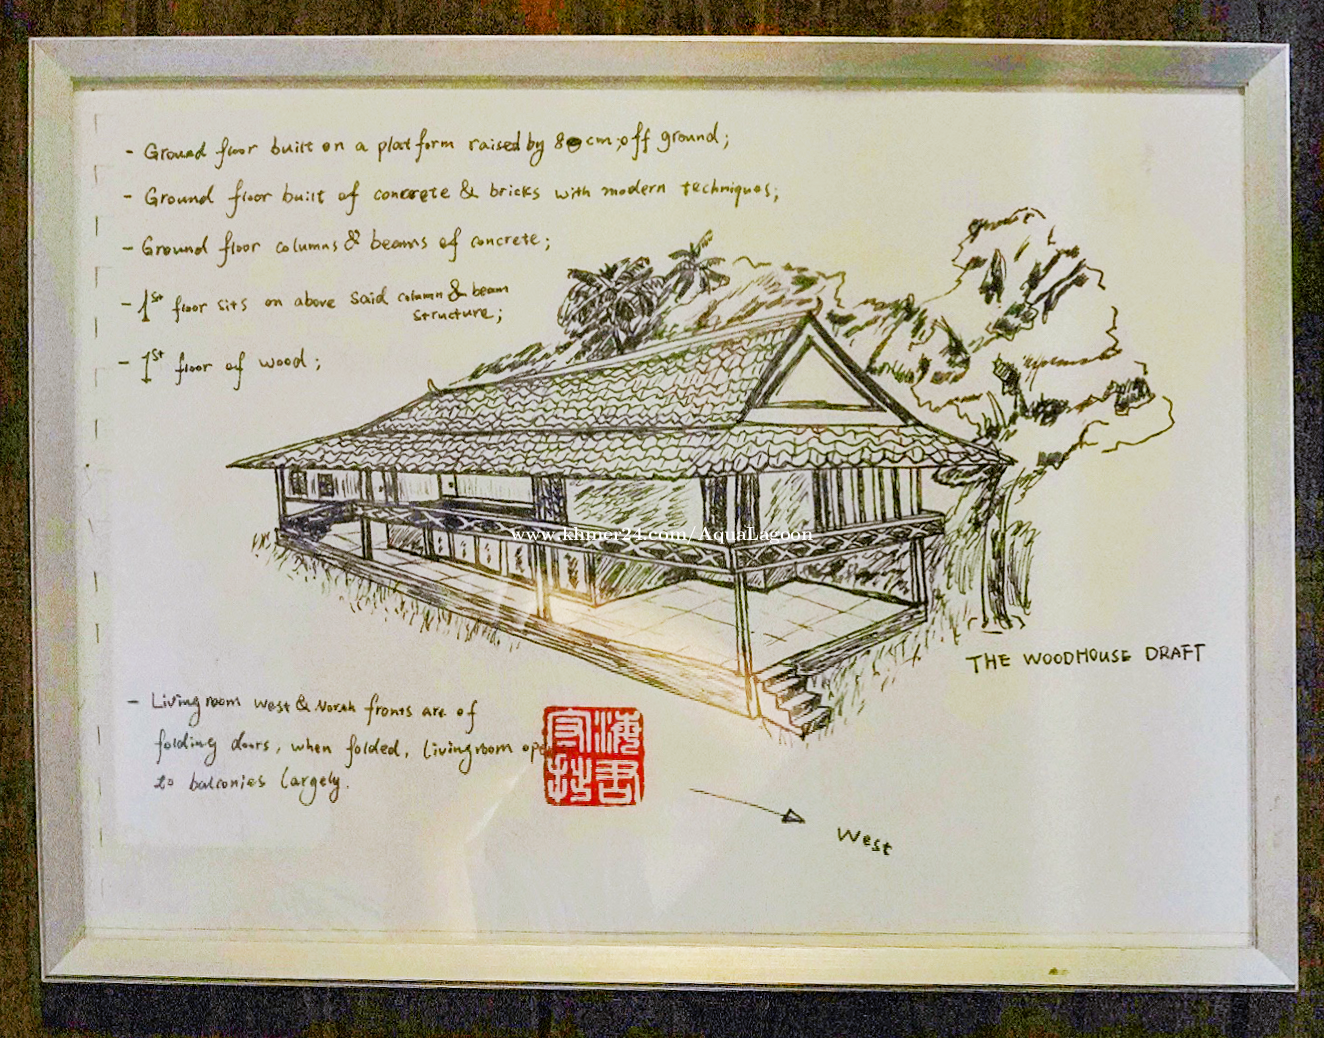 - Ground floor built on a platform raised by 80cm off ground;
- Ground floor built of concrete & bricks with modern techniques;
- Ground floor columns & beams of concrete;
- 1st floor sits on above said column & beam
structure;
- 1st floor of wood;
www.khmer24.com/AquaLagoon
THE WOODHOUSE DRAFT
- Livingroom west & North fronts are of
folding doors, when folded, livingroom open
to balconies largely.
West